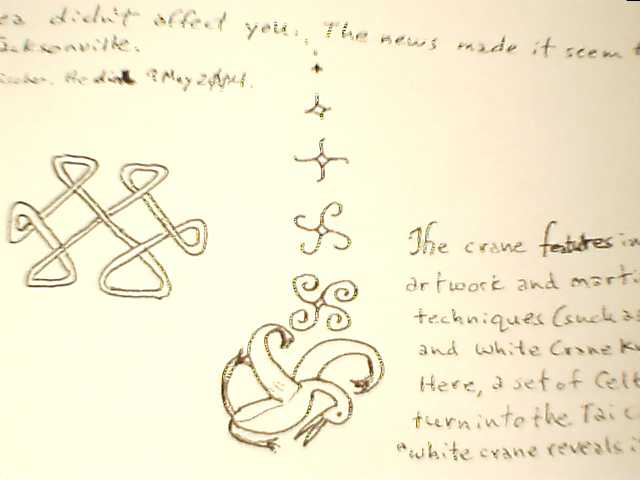 didn't affect you. The news made it seem
Jacksonville.
He died 9 May
The crane features in
artwork and marti
techniques (such as
and White Crane K
Here, a set of Celt
turn into the Tai C
"white crane reveals i